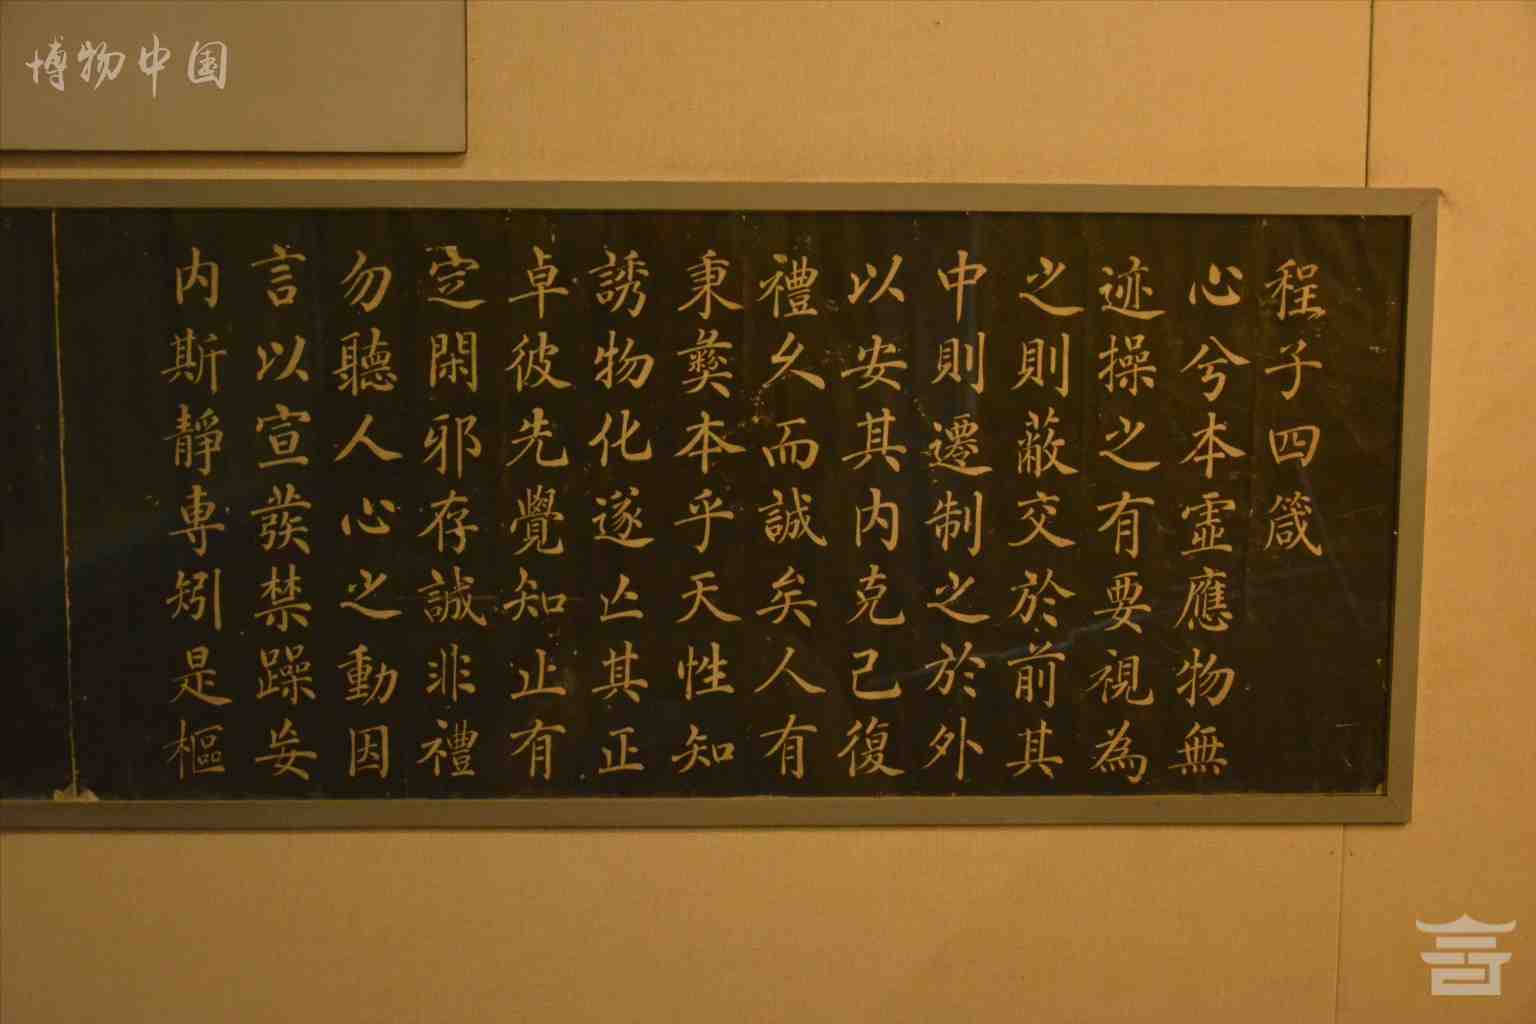 博物中国
程子四箴
心兮本虛應物無
迹操之有要視為
之則蔽交於前其
中則遷制之於外
以安其内克己復
禮久而誠矣人有
秉彝本乎天性知
誘物化遂亡其正
卓彼先覺知止有
定閑邪存誠非禮
勿聽人心之動因
言以宣發禁躁妄
内斯靜專矧是樞